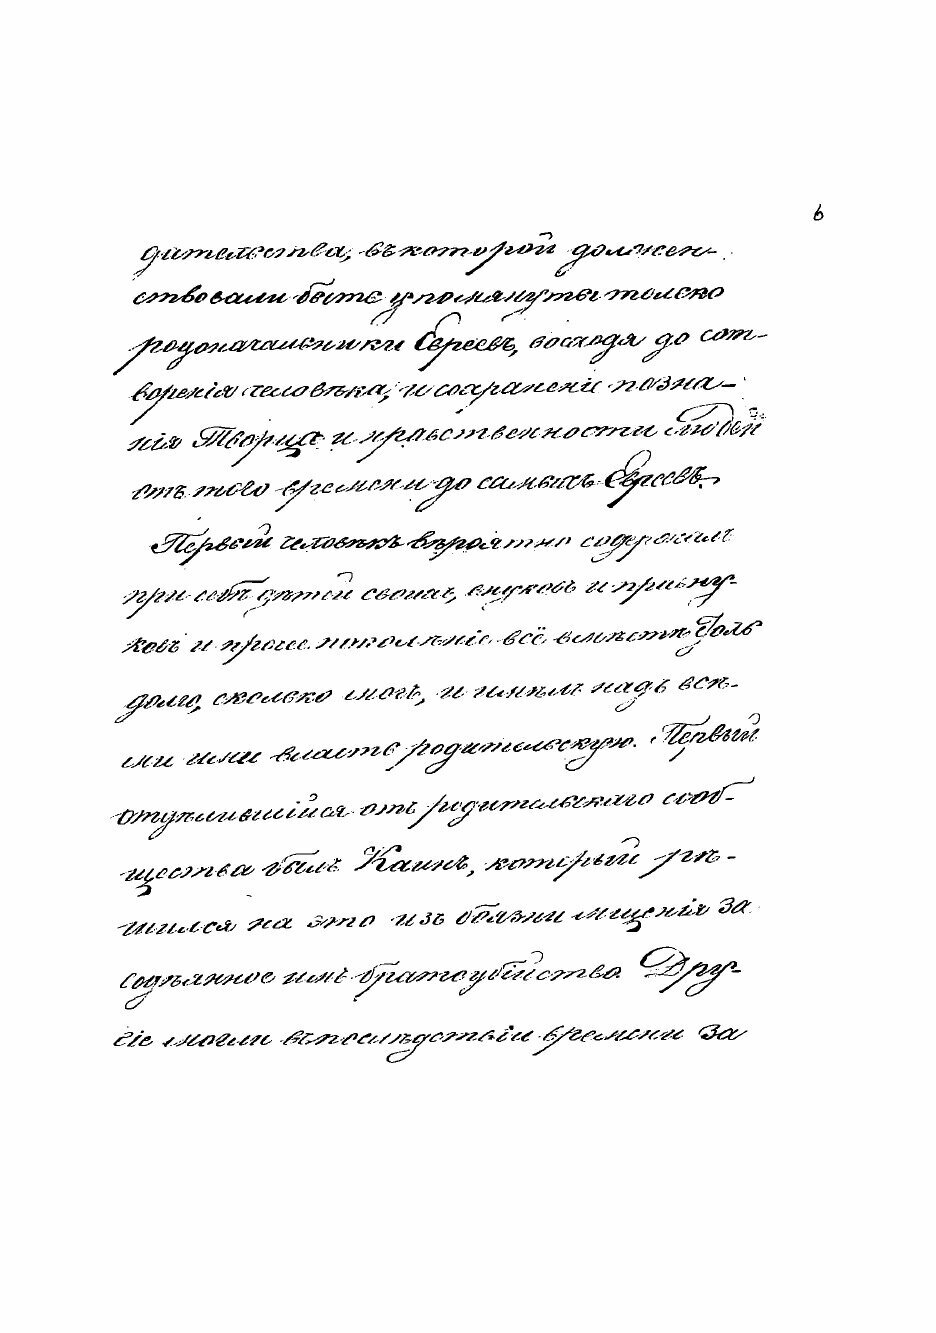 6
дительства, въ которой должен-
ствовали быть упомянуты только
родоначальники Евреевъ, восходя до сот-
воренія человѣка, и сохраненіи позна-
нія Творца и нравственности людей
отъ того времени до самыхъ Евреевъ.
Первый человѣкъ вѣроятно содержалъ
при себѣ дѣтей своихъ, внуковъ и правну-
ковъ и проче поколѣніе всё вмѣстѣ столь
долго, сколько могъ, и имѣлъ надъ всѣ-
ми ими власть родительскую. Первый
отдѣлившійся отъ родительскаго сооб-
щества былъ Каинъ, который рѣ-
шился на это изъ боязни мщенія за
содѣянное имъ братоубійство. Дру-
гіе могли въ послѣдствіи времени за